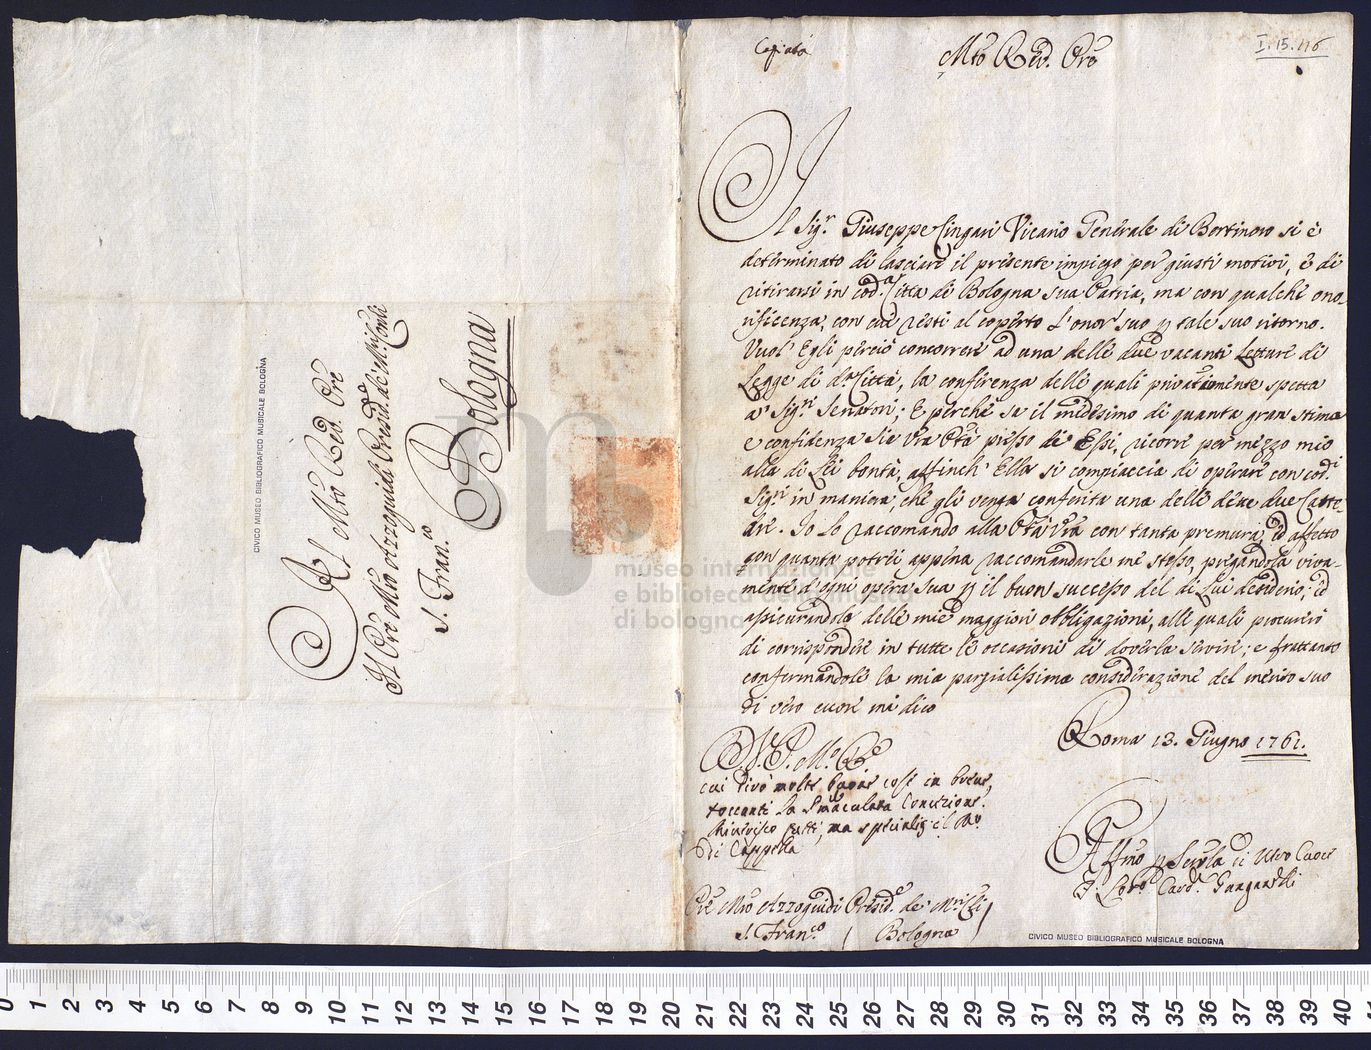 Al Mto Rev. Pre
Il Pre Mro Azzoguidi Presid.e de' Mri Conli
S. Fran.co
Bologna
CIVICO MUSEO BIBLIOGRAFICO MUSICALE BOLOGNA
museo internazionale
e biblioteca della musica
di bologna
Copiata
Mto Rev. Pre
I.15.116
Il Sig.r Giuseppe Cingari Vicario Generale di Bertinoro si è
determinato di lasciare il presente impiego per giusti motivi, e di
ritirarsi in cod.a Città di Bologna sua Patria, ma con qualche ono-
rificenza, con cui resti al coperto l'onor suo p tale suo ritorno.
Vuol' Egli perciò concorrere ad una delle due vacanti Letture di
Legge di d.a Città, la conferenza delle quali privatamente spetta
a' Sig.ri Senatori; E perchè sa il medesimo di quanta gran stima
e confidenza sie Vra Ptà presso di Essi, ricorre per mezzo mio
alla di Lei bontà, affinch' Ella si compiaccia di operare con cod.i
Sig.ri in maniera, che gli venga conferita una delle dette due Catte-
dre. Io lo raccomando alla Ptà Vra con tanta premura, ed affetto
con quanta potrei appena raccomandarle me stesso, pregandola viva-
mente d'ogni opera sua p il buon successo del di Lui desiderio; ed
assicurandola delle mie maggiori obbligazioni, alle quali procurerò
di corrispondere in tutte le occasioni di doverla servire; e frattanto
confermandole la mia parzialissima considerazione del merito suo
di vero cuore mi dico
Roma 13. Giugno 1761.
D. V. P. M.o
cui dirò molte cose in breve,
toccanti la Immaculata Concezione.
Riverisco tutti, ma specialm. il Mro
di Cappella
Affmo p Serv.la di Vero Cuore
F. Lor.o Card. Ganganelli
Pre Mro Azzoguidi Presid.e de' Mri Cli
S. Fran.co ( Bologna )
CIVICO MUSEO BIBLIOGRAFICO MUSICALE BOLOGNA
0 1 2 3 4 5 6 7 8 9 10 11 12 13 14 15 16 17 18 19 20 21 22 23 24 25 26 27 28 29 30 31 32 33 34 35 36 37 38 39 40